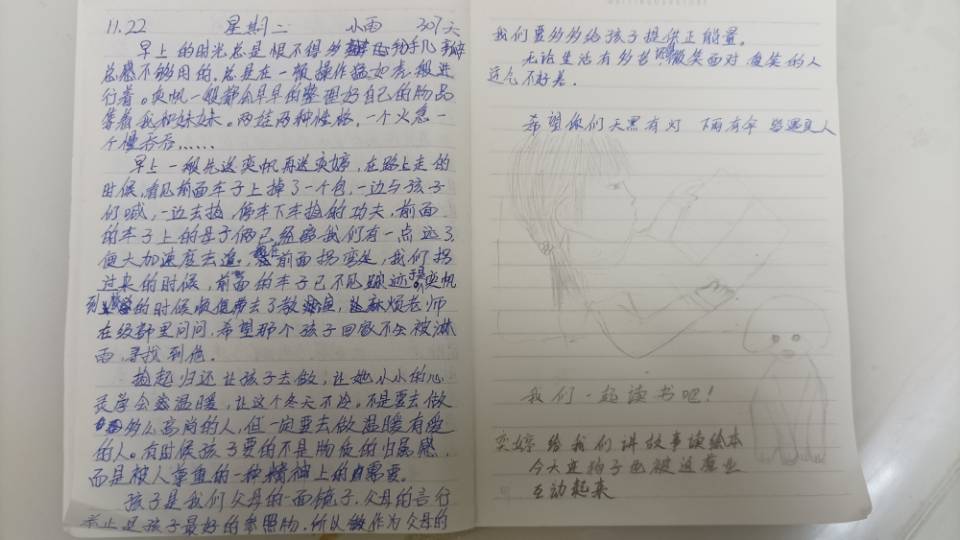 11.22 星期二 小雨 307天
早上的时光总是恨不得
总感不够用的,总是在一顿操作猛如虎般进
行着。奕帆一般都会早早的整理好自己的物品
等着我和妹妹。两娃两种性格,一个火急一
个慢吞吞……
早上一般先送奕帆再送奕婷,在路上走的
时候,看见前面车子上掉了一个包,一边与孩子
们喊,一边去捡,停车下车捡的功夫,前面
的车子上的母子俩已经离我们有一点远了
便大加速度去追,前面拐弯处,我们拐
过来的时候,前面的车子已不见踪迹 奕帆
到 的时候 去了教 烦老师
在级群里问问,希望那个孩子回家不会被淋
雨,寻找到包。
捡起归还让孩子去做,让她小小的心
灵学会感温暖,让这个冬天不冷。不是要去做
多么高尚的人,但一定要去做温暖有爱
的人。有时候孩子要的不是物质的归属感,
而是被人尊重的一种精神上的需要。
孩子是我们父母的一面镜子,父母的言行
举止是孩子最好的参照物,所以做作为父母的
我们要多多给孩子提供正能量。
无论生活有多苦 微笑面对 爱笑的人
运气不好差.
希望你们天黑有灯 下雨有伞 路遇良人
我们一起读书吧!
奕婷给我们讲故事读绘本
今天
互动起来